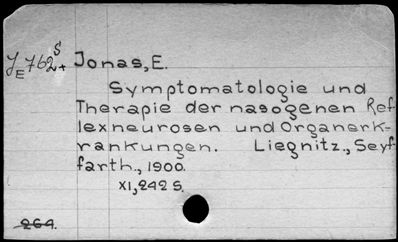 JE762S+ Jonas, E.
Symptomatologie und
Therapie der nasogenen Ref-
lexneurosen und Organerk-
rankungen. Liegnitz., Seyf-
farth., 1900.
XI, 242 S.
264.